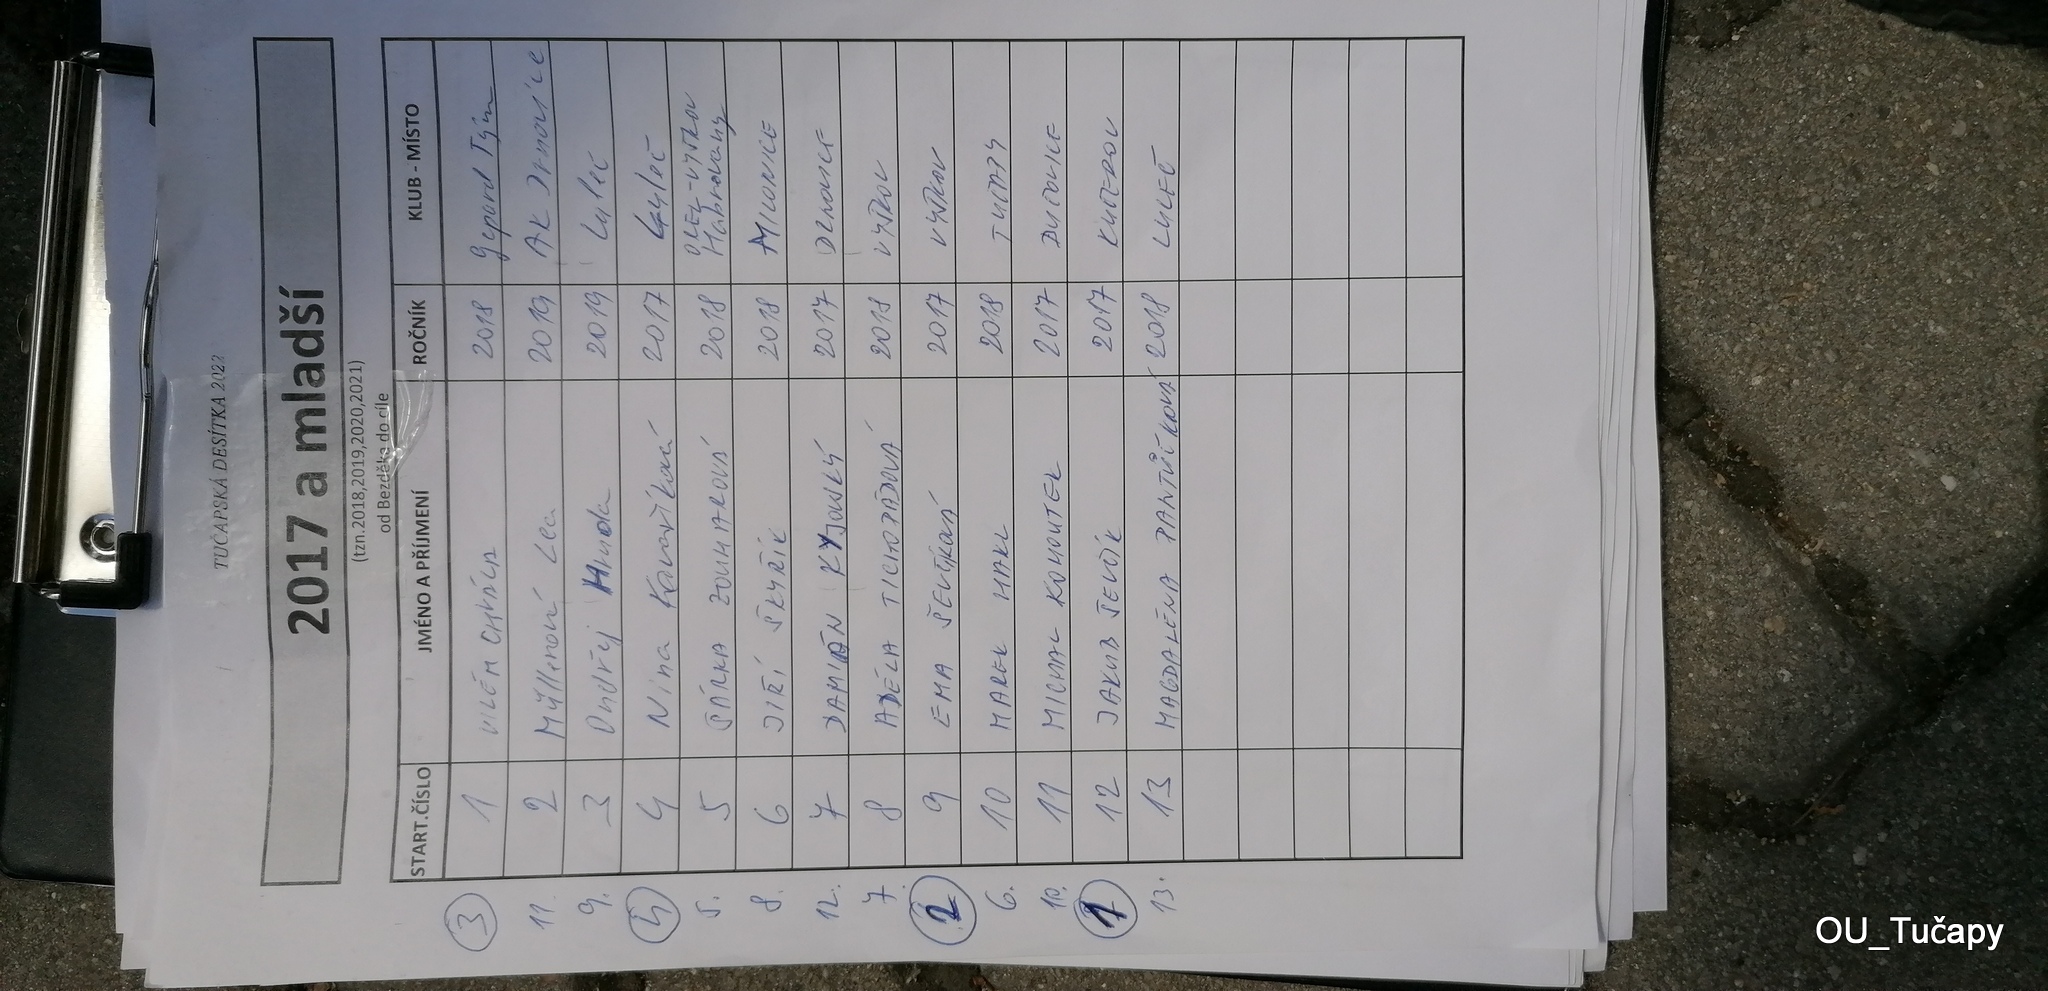 TUČAPSKÁ DESÍTKA 2022
2017 a mladší
(tzn.2018,2019,2020,2021)
od Bezděka do cíle
START.ČÍSLO JMÉNO A PŘÍJMENÍ ROČNÍK KLUB - MÍSTO
3 1 VILÉM CHVÁLA 2018 Gepard Tým
11. 2 Müllerová Lea 2019 AK Drnovice
9. 3 Ondřej Hrnda 2019 Luleč
4 4 Nina Kovaříková 2017 Luleč
5. 5 ŠÁRKA ZOUHAROVÁ 2018 OREL-VYŠKOV Habrovany
8. 6 JIŘÍ ŠKYŘÍK 2018 MILONICE
12. 7 DAMIÁN KYJOVSKÝ 2017 DRNOVICE
7. 8 ADÉLA TICHOPÁDOVÁ 2018 VYŠKOV
2 9 EMA ŠEVČÍKOVÁ 2017 VYŠKOV
6. 10 MAREK HAKL 2018 TUČAPY
10. 11 MICHAL KOHOUTEK 2017 BUČOVICE
1 12 JAKUB ŠEVČÍK 2017 KUČEROV
13. 13 MAGDALÉNA PANTŮČKOVÁ 2018 LULEČ
OU_Tučapy